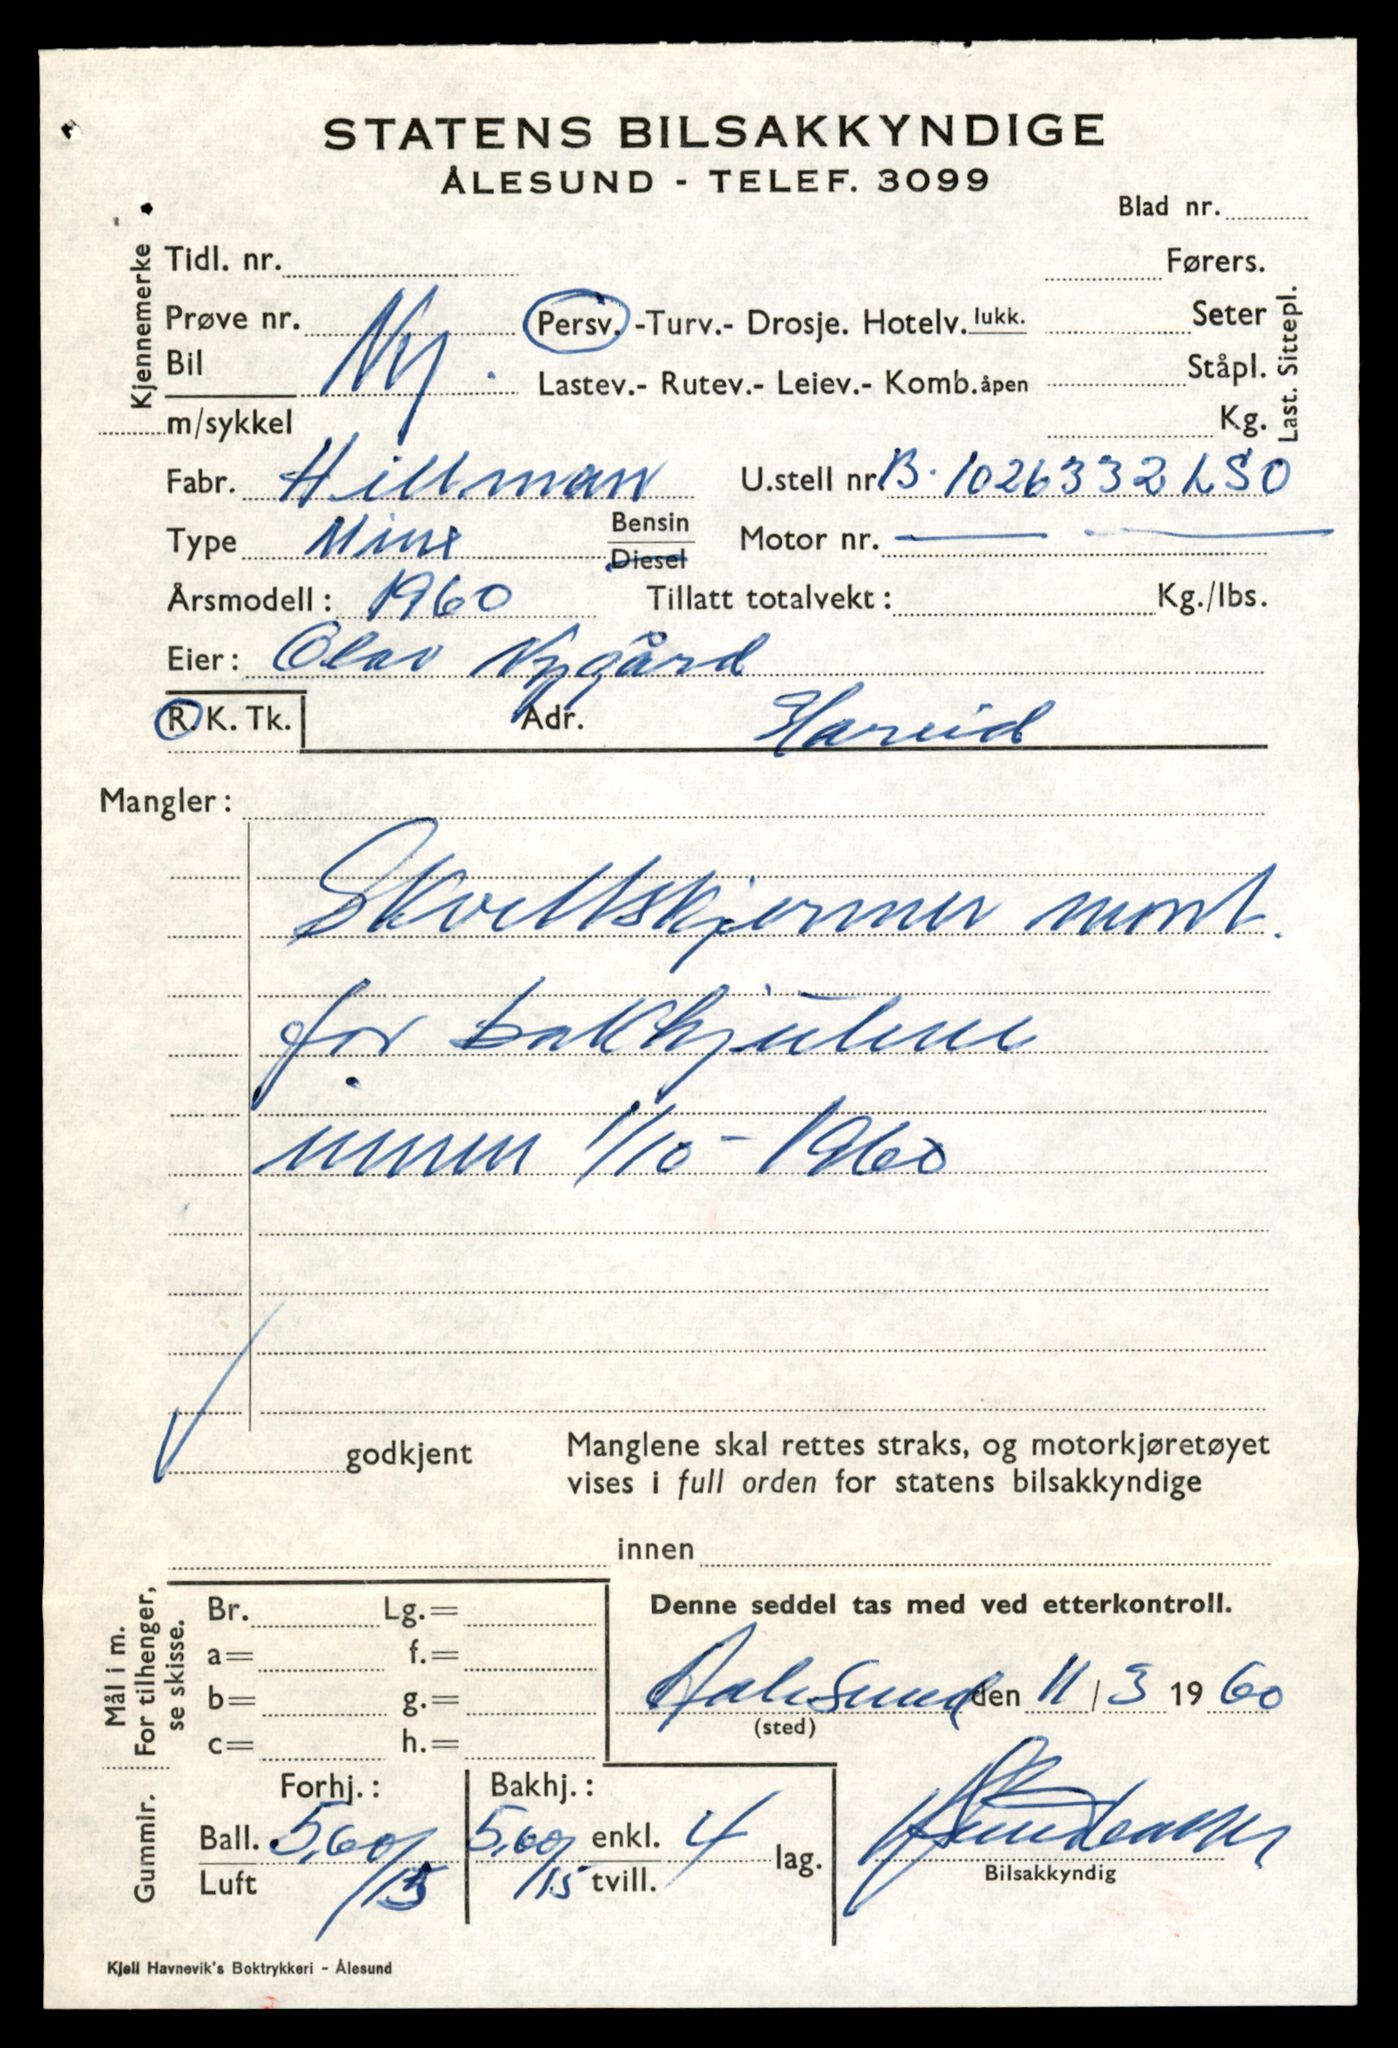 STATENS BILSAKKYNDIGE
ÅLESUND - TELEF. 3099
Blad nr.
Kjennemerke
Tidl. nr. Førers.
Prøve nr. Ny. Persv. -Turv.- Drosje. Hotelv. lukk. Seter
Bil Lastev.- Rutev.- Leiev.- Komb. åpen Ståpl.
m/sykkel Kg.
Last. Sittepl.
Fabr. Hillman U.stell nr B. 1026332 LSO
Type Minx Bensin Diesel Motor nr. — —
Årsmodell: 1960 Tillatt totalvekt: Kg./lbs.
Eier: Olav Nygård
R. K. Tk. Adr. Hareid
Mangler:
Skvettskjermer mont.
for bakhjulene
innen 1/10 - 1960
godkjent Manglene skal rettes straks, og motorkjøretøyet
vises i full orden for statens bilsakkyndige
innen
Mål i m.
For tilhenger,
se skisse.
Br. Lg.= Denne seddel tas med ved etterkontroll.
a= f.=
b= g.= Aalesund den 11/3 1960
(sted)
c= h.=
Gummir.
Forhj.: Bakhj.:
Ball. 5,60/ 5,60/ enkl. 4 lag.
Luft /15 /15 tvill.
Bilsakkyndig
Kjell Havnevik's Boktrykkeri - Ålesund